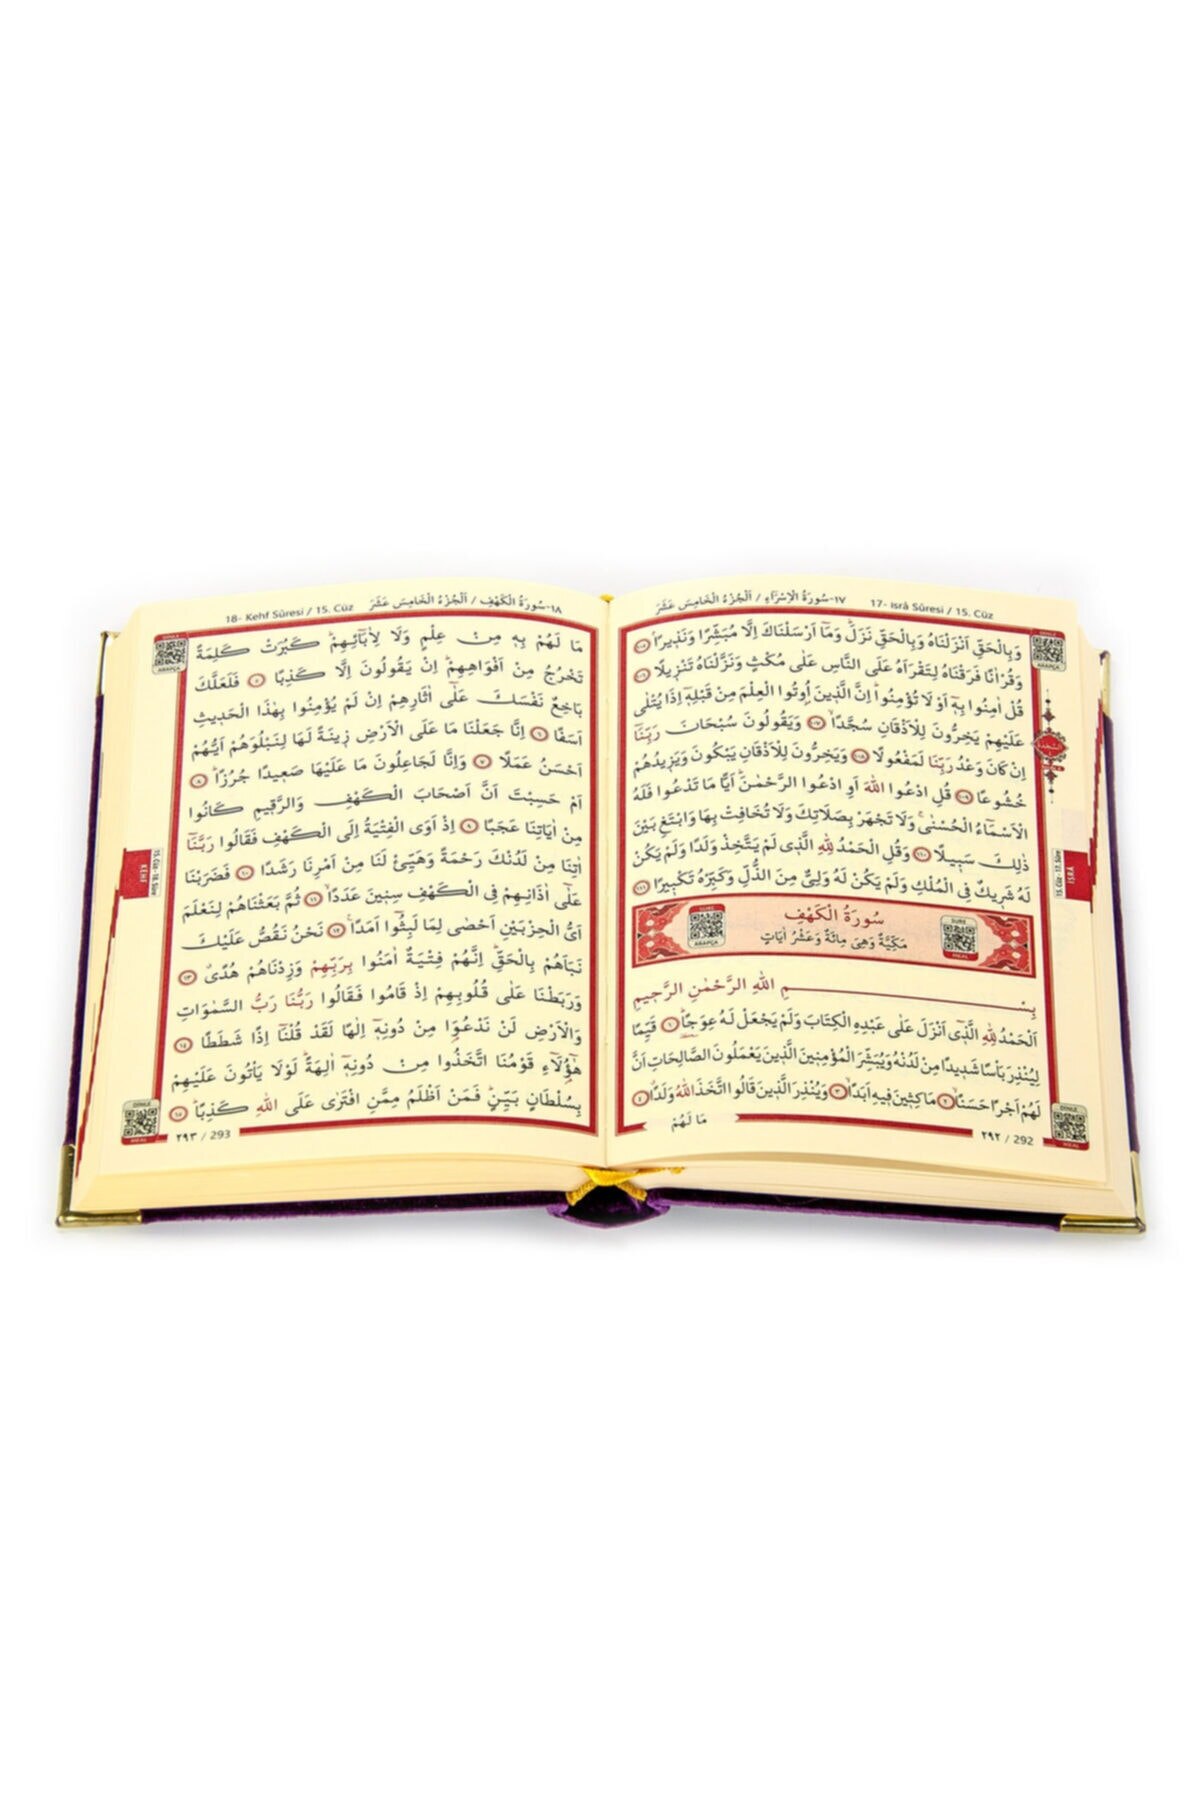 ١٧-سُورَةُ الْاِسْرَٓاءِ / اَلْجُزْءُ الْخَامِسَ عَشَرَ 17- İsrâ Sûresi / 15. Cüz
وَبِالْحَقِّ اَنْزَلْنَاهُ وَبِالْحَقِّ نَزَلَۜ وَمَٓا اَرْسَلْنَاكَ اِلَّا مُبَشِّرًا وَنَذ۪يرًاۢ ﴿١٠٥﴾
وَقُرْاٰنًا فَرَقْنَاهُ لِتَقْرَاَهُ عَلَى النَّاسِ عَلٰى مُكْثٍ وَنَزَّلْنَاهُ تَنْز۪يلًا ﴿١٠٦﴾
قُلْ اٰمِنُوا بِه۪ٓ اَوْ لَا تُؤْمِنُواۜ اِنَّ الَّذ۪ينَ اُو۫تُوا الْعِلْمَ مِنْ قَبْلِه۪ٓ اِذَا يُتْلٰى
عَلَيْهِمْ يَخِرُّونَ لِلْاَذْقَانِ سُجَّدًاۙ ﴿١٠٧﴾ وَيَقُولُونَ سُبْحَانَ رَبِّنَٓا
اِنْ كَانَ وَعْدُ رَبِّنَا لَمَفْعُولًا ﴿١٠٨﴾ وَيَخِرُّونَ لِلْاَذْقَانِ يَبْكُونَ وَيَز۪يدُهُمْ
خُشُوعًا ﴿١٠٩﴾ قُلِ ادْعُوا اللّٰهَ اَوِ ادْعُوا الرَّحْمٰنَۜ اَيًّا مَا تَدْعُوا فَلَهُ
الْاَسْمَٓاءُ الْحُسْنٰىۚ وَلَا تَجْهَرْ بِصَلَاتِكَ وَلَا تُخَافِتْ بِهَا وَابْتَغِ بَيْنَ
ذٰلِكَ سَب۪يلًا ﴿١١٠﴾ وَقُلِ الْحَمْدُ لِلّٰهِ الَّذ۪ي لَمْ يَتَّخِذْ وَلَدًا وَلَمْ يَكُنْ
لَهُ شَر۪يكٌ فِي الْمُلْكِ وَلَمْ يَكُنْ لَهُ وَلِيٌّ مِنَ الذُّلِّ وَكَبِّرْهُ تَكْب۪يرًا ﴿١١١﴾
سُورَةُ الْكَهْفِ
مَكِّيَّةٌ وَهِيَ مِائَةٌ وَعَشْرُ اٰيَاتٍ
SURE
MEAL
SURE
ARAPÇA
بِسْمِ اللّٰهِ الرَّحْمٰنِ الرَّح۪يمِ
اَلْحَمْدُ لِلّٰهِ الَّذ۪ٓي اَنْزَلَ عَلٰى عَبْدِهِ الْكِتَابَ وَلَمْ يَجْعَلْ لَهُ عِوَجًاۜ ﴿١﴾ قَيِّمًا
لِيُنْذِرَ بَاْسًا شَد۪يدًا مِنْ لَدُنْهُ وَيُبَشِّرَ الْمُؤْمِن۪ينَ الَّذ۪ينَ يَعْمَلُونَ الصَّالِحَاتِ اَنَّ
لَهُمْ اَجْرًا حَسَنًاۙ ﴿٢﴾ مَاكِث۪ينَ ف۪يهِ اَبَدًاۙ ﴿٣﴾ وَيُنْذِرَ الَّذ۪ينَ قَالُوا اتَّخَذَ اللّٰهُ وَلَدًاۗ ﴿٤﴾
مَا لَهُمْ
٢٩٢ / 292
DİNLE
ARAPÇA
اَلسَّجْدَةُ
15. Cüz - 17. Sûre
İSRÂ
DİNLE
MEAL
18- Kehf Sûresi / 15. Cüz ١٨-سُورَةُ الْكَهْفِ / اَلْجُزْءُ الْخَامِسَ عَشَرَ
مَا لَهُمْ بِه۪ مِنْ عِلْمٍ وَلَا لِاٰبَٓائِهِمْۜ كَبُرَتْ كَلِمَةً
تَخْرُجُ مِنْ اَفْوَاهِهِمْۜ اِنْ يَقُولُونَ اِلَّا كَذِبًا ﴿٥﴾ فَلَعَلَّكَ
بَاخِعٌ نَفْسَكَ عَلٰٓى اٰثَارِهِمْ اِنْ لَمْ يُؤْمِنُوا بِهٰذَا الْحَد۪يثِ
اَسَفًا ﴿٦﴾ اِنَّا جَعَلْنَا مَا عَلَى الْاَرْضِ ز۪ينَةً لَهَا لِنَبْلُوَهُمْ اَيُّهُمْ
اَحْسَنُ عَمَلًا ﴿٧﴾ وَاِنَّا لَجَاعِلُونَ مَا عَلَيْهَا صَع۪يدًا جُرُزًاۜ ﴿٨﴾
اَمْ حَسِبْتَ اَنَّ اَصْحَابَ الْكَهْفِ وَالرَّق۪يمِ كَانُوا
مِنْ اٰيَاتِنَا عَجَبًا ﴿٩﴾ اِذْ اَوَى الْفِتْيَةُ اِلَى الْكَهْفِ فَقَالُوا رَبَّنَٓا
اٰتِنَا مِنْ لَدُنْكَ رَحْمَةً وَهَيِّئْ لَنَا مِنْ اَمْرِنَا رَشَدًا ﴿١٠﴾ فَضَرَبْنَا
عَلٰٓى اٰذَانِهِمْ فِي الْكَهْفِ سِن۪ينَ عَدَدًاۙ ﴿١١﴾ ثُمَّ بَعَثْنَاهُمْ لِنَعْلَمَ
اَيُّ الْحِزْبَيْنِ اَحْصٰى لِمَا لَبِثُٓوا اَمَدًا۟ ﴿١٢﴾ نَحْنُ نَقُصُّ عَلَيْكَ
نَبَاَهُمْ بِالْحَقِّۜ اِنَّهُمْ فِتْيَةٌ اٰمَنُوا بِرَبِّهِمْ وَزِدْنَاهُمْ هُدًىۗ ﴿١٣﴾
وَرَبَطْنَا عَلٰى قُلُوبِهِمْ اِذْ قَامُوا فَقَالُوا رَبُّنَا رَبُّ السَّمٰوَاتِ
وَالْاَرْضِ لَنْ نَدْعُوَ۬ا مِنْ دُونِه۪ٓ اِلٰهًا لَقَدْ قُلْنَٓا اِذًا شَطَطًا ﴿١٤﴾
هٰٓؤُ۬لَٓاءِ قَوْمُنَا اتَّخَذُوا مِنْ دُونِه۪ٓ اٰلِهَةًۜ لَوْلَا يَأْتُونَ عَلَيْهِمْ
بِسُلْطَانٍ بَيِّنٍۜ فَمَنْ اَظْلَمُ مِمَّنِ افْتَرٰى عَلَى اللّٰهِ كَذِبًاۜ ﴿١٥﴾
٢٩٣ / 293
DİNLE
ARAPÇA
15. Cüz - 18. Sûre
KEHF
DİNLE
MEAL